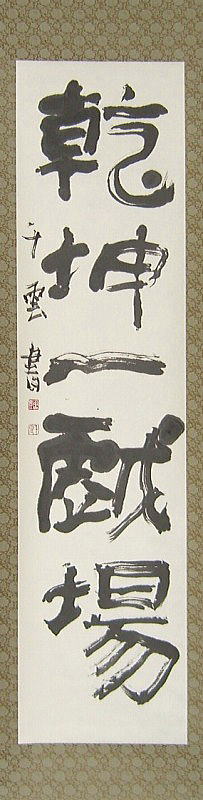 乾坤一戯場
千雲書